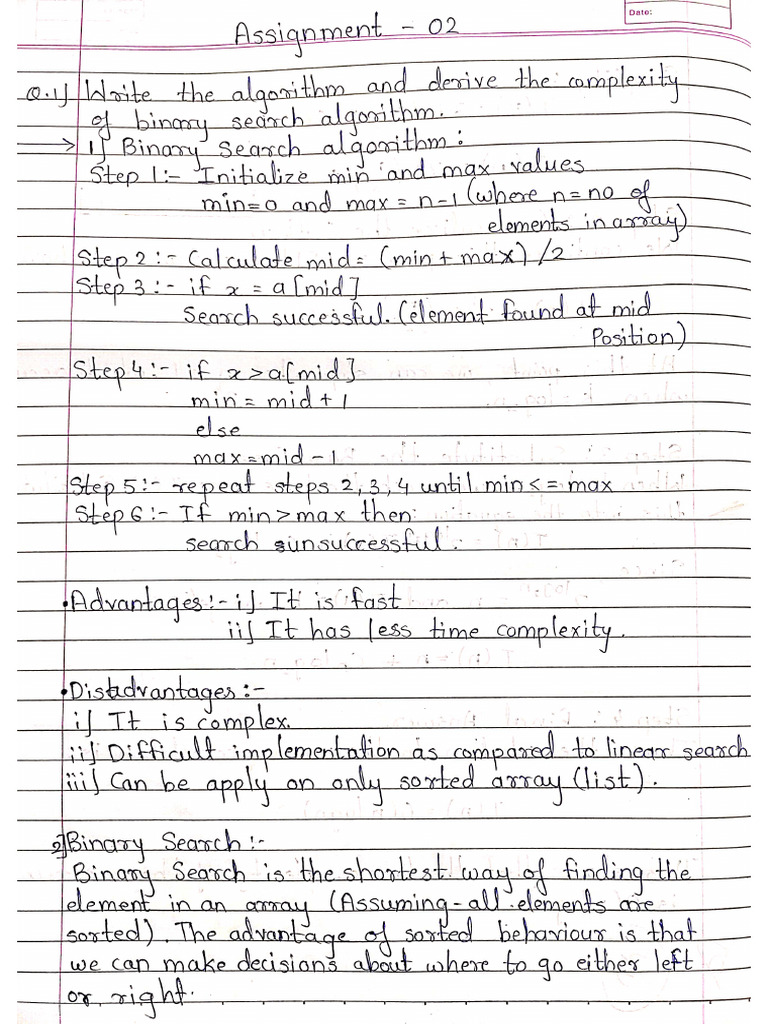 Date:
Assignment - 02
Q.1] Write the algorithm and derive the complexity
of binary search algorithm.
→ 1] Binary Search algorithm:
Step 1:- Initialize min and max values
min=0 and max = n-1 (where n=no of
elements in array)
Step 2:- Calculate mid= (min + max) /2
Step 3:- if x = a[mid]
Search successful. (element found at mid
Position)
Step 4:- if x > a[mid]
min = mid + 1
else
max=mid - 1
Step 5:- repeat steps 2, 3, 4 until min <= max
Step 6:- If min > max then
search unsuccessful.
• Advantages:- i] It is fast
ii] It has less time complexity.
• Disadvantages:-
i] It is complex.
ii] Difficult implementation as compared to linear search
iii] Can be apply on only sorted array (list).
2] Binary Search:-
Binary Search is the shortest way of finding the
element in an array (Assuming-all elements are
sorted). The advantage of sorted behaviour is that
we can make decisions about where to go either left
or right.